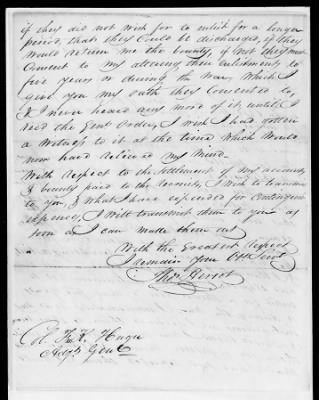 if they did not wish for to inlist for a longer
period, that they Could be discharged, if they
would return me the bounty, if not they must
Consent to my altering their enlistments to
five years or during the War, which I
give you my oath they Consented to,
& I never heard any more of it, until I
read the Genl Order, I wish I had gotten
a Witness to it at the time which would
now have relieved my Mind.
With Respect to the Settlement of my accounts,
& bounty paid to the recruits, I wish to transmit
to you, & what I have expended for Contingent
expences, I will transmit them to you as
soon as I can make them out
With the Greatest Respect
I remain your Obt Servt
Thos
Col.
Adjt Genl